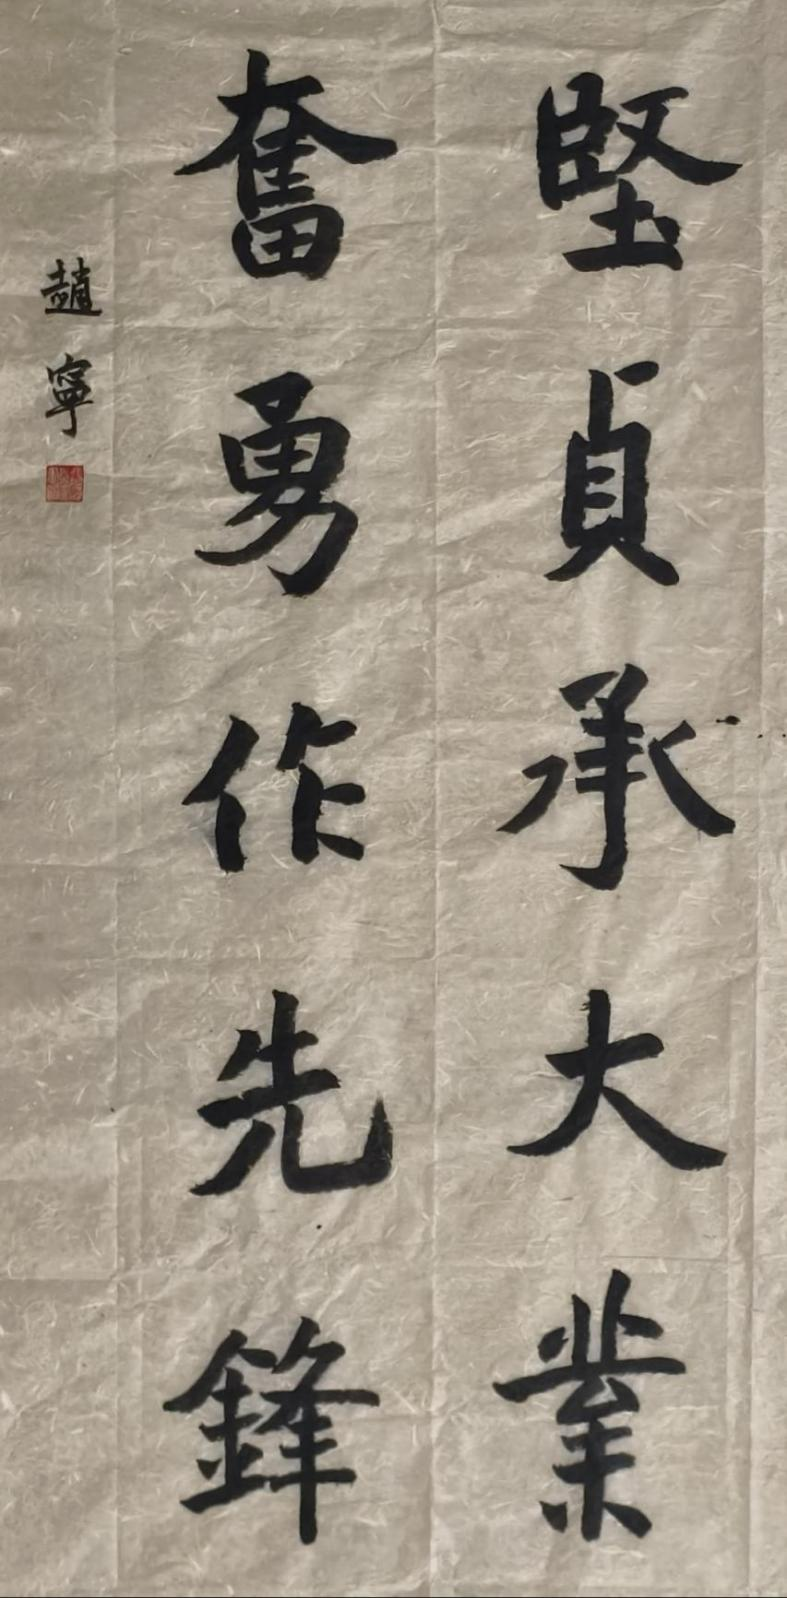 堅貞承大業
奮勇作先鋒
趙寧